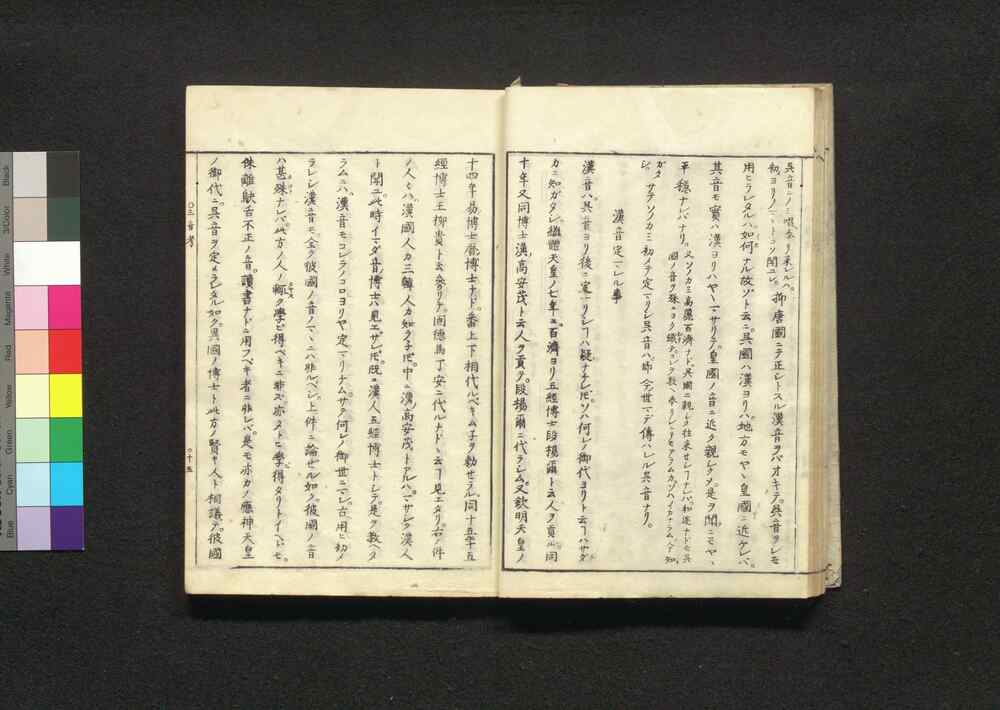 呉音ニノミ唱ヘ来レルハ。
初ヨリノマヽトコソ聞ユレ。抑唐國ニテ正シトスル漢音ヲバオキテ。呉音ヲシモ
用ヒラレタルハ如何ナル故ゾト云ニ。呉國ハ漢ヨリハ地方モヤヽ皇國ニ近ケレバ。
其音モ實ハ漢ヨリハヤヽマサリテ。皇國ノ音ニ近ク親シク。是ヲ聞ニモヤヽ
平穏ナレバナリ。又ソノカミ高麗百濟ナド呉國ニ親ク往来セシナレバ。和迩ナドモ呉
國ノ音ヲ殊ニヨク識テ。教ヘ参ラレシニモアラムカ。ソハイカナラム。知
ガタ
シ。サテソノカミ初メテ定マリシ呉音ハ。即今ノ世マデ傳ハレル呉音ナリ。
漢音定マレル事
漢音ハ呉音ヨリ後ニ定マリシヿハ疑ナケレ𪜈。ソハ何レノ御代ヨリト云ヿハサダ
カニ知ガタシ。繼體天皇ノ七年ニ百濟ヨリ五經博士段楊爾ト云人ヲ貢ル。同
十年又同博士漢高安茂ト云人ヲ貢テ。段楊爾ニ代ラシム。又欽明天皇ノ
十四年易博士暦博士ナド。番上下相代ルベキムネヲ勅セラレ。同十五年五
經博士王柳貴ト云参リテ。固德馬丁安ニ代ルナドヽ云ヿ見エタリ。右ノ件
ノ人々ハ漢國人カ三韓人カ知ラネ𪜈。中ニ漢高安茂トアルハ。マサシク漢人
ト聞ユ。此時イマダ音博士ハ見エザレ𪜈。既ニ漢人五經博士トシテ。是ヲ教ヘタ
ラムニハ。漢音モコレラノコロヨリヤ定マリナム。サテ何レノ御世ニマレ。古用ヒ初メ
ラレシ漢音モ。全ク彼國ノ音ノマヽニハ非ルベシ。上件ニ論セル如ク彼國ノ音
ハ甚殊ナレバ。此方ノ人ノ輙ク學ビ得ベキニ非ズ。亦タトヒ學得タリトイヘ𪜈。
侏離鴃舌不正ノ音。讀書ナドニ用フベキ者ニ非レバ。是モ亦カノ應神天皇
ノ御代ニ呉音ヲ定メラレタル如ク。異國ノ博士ト此方ノ賢キ人ト相議テ。彼國
三音考
十五
Black
3/Color
White
Magenta
Red
Yellow
Green
Cyan
Blue